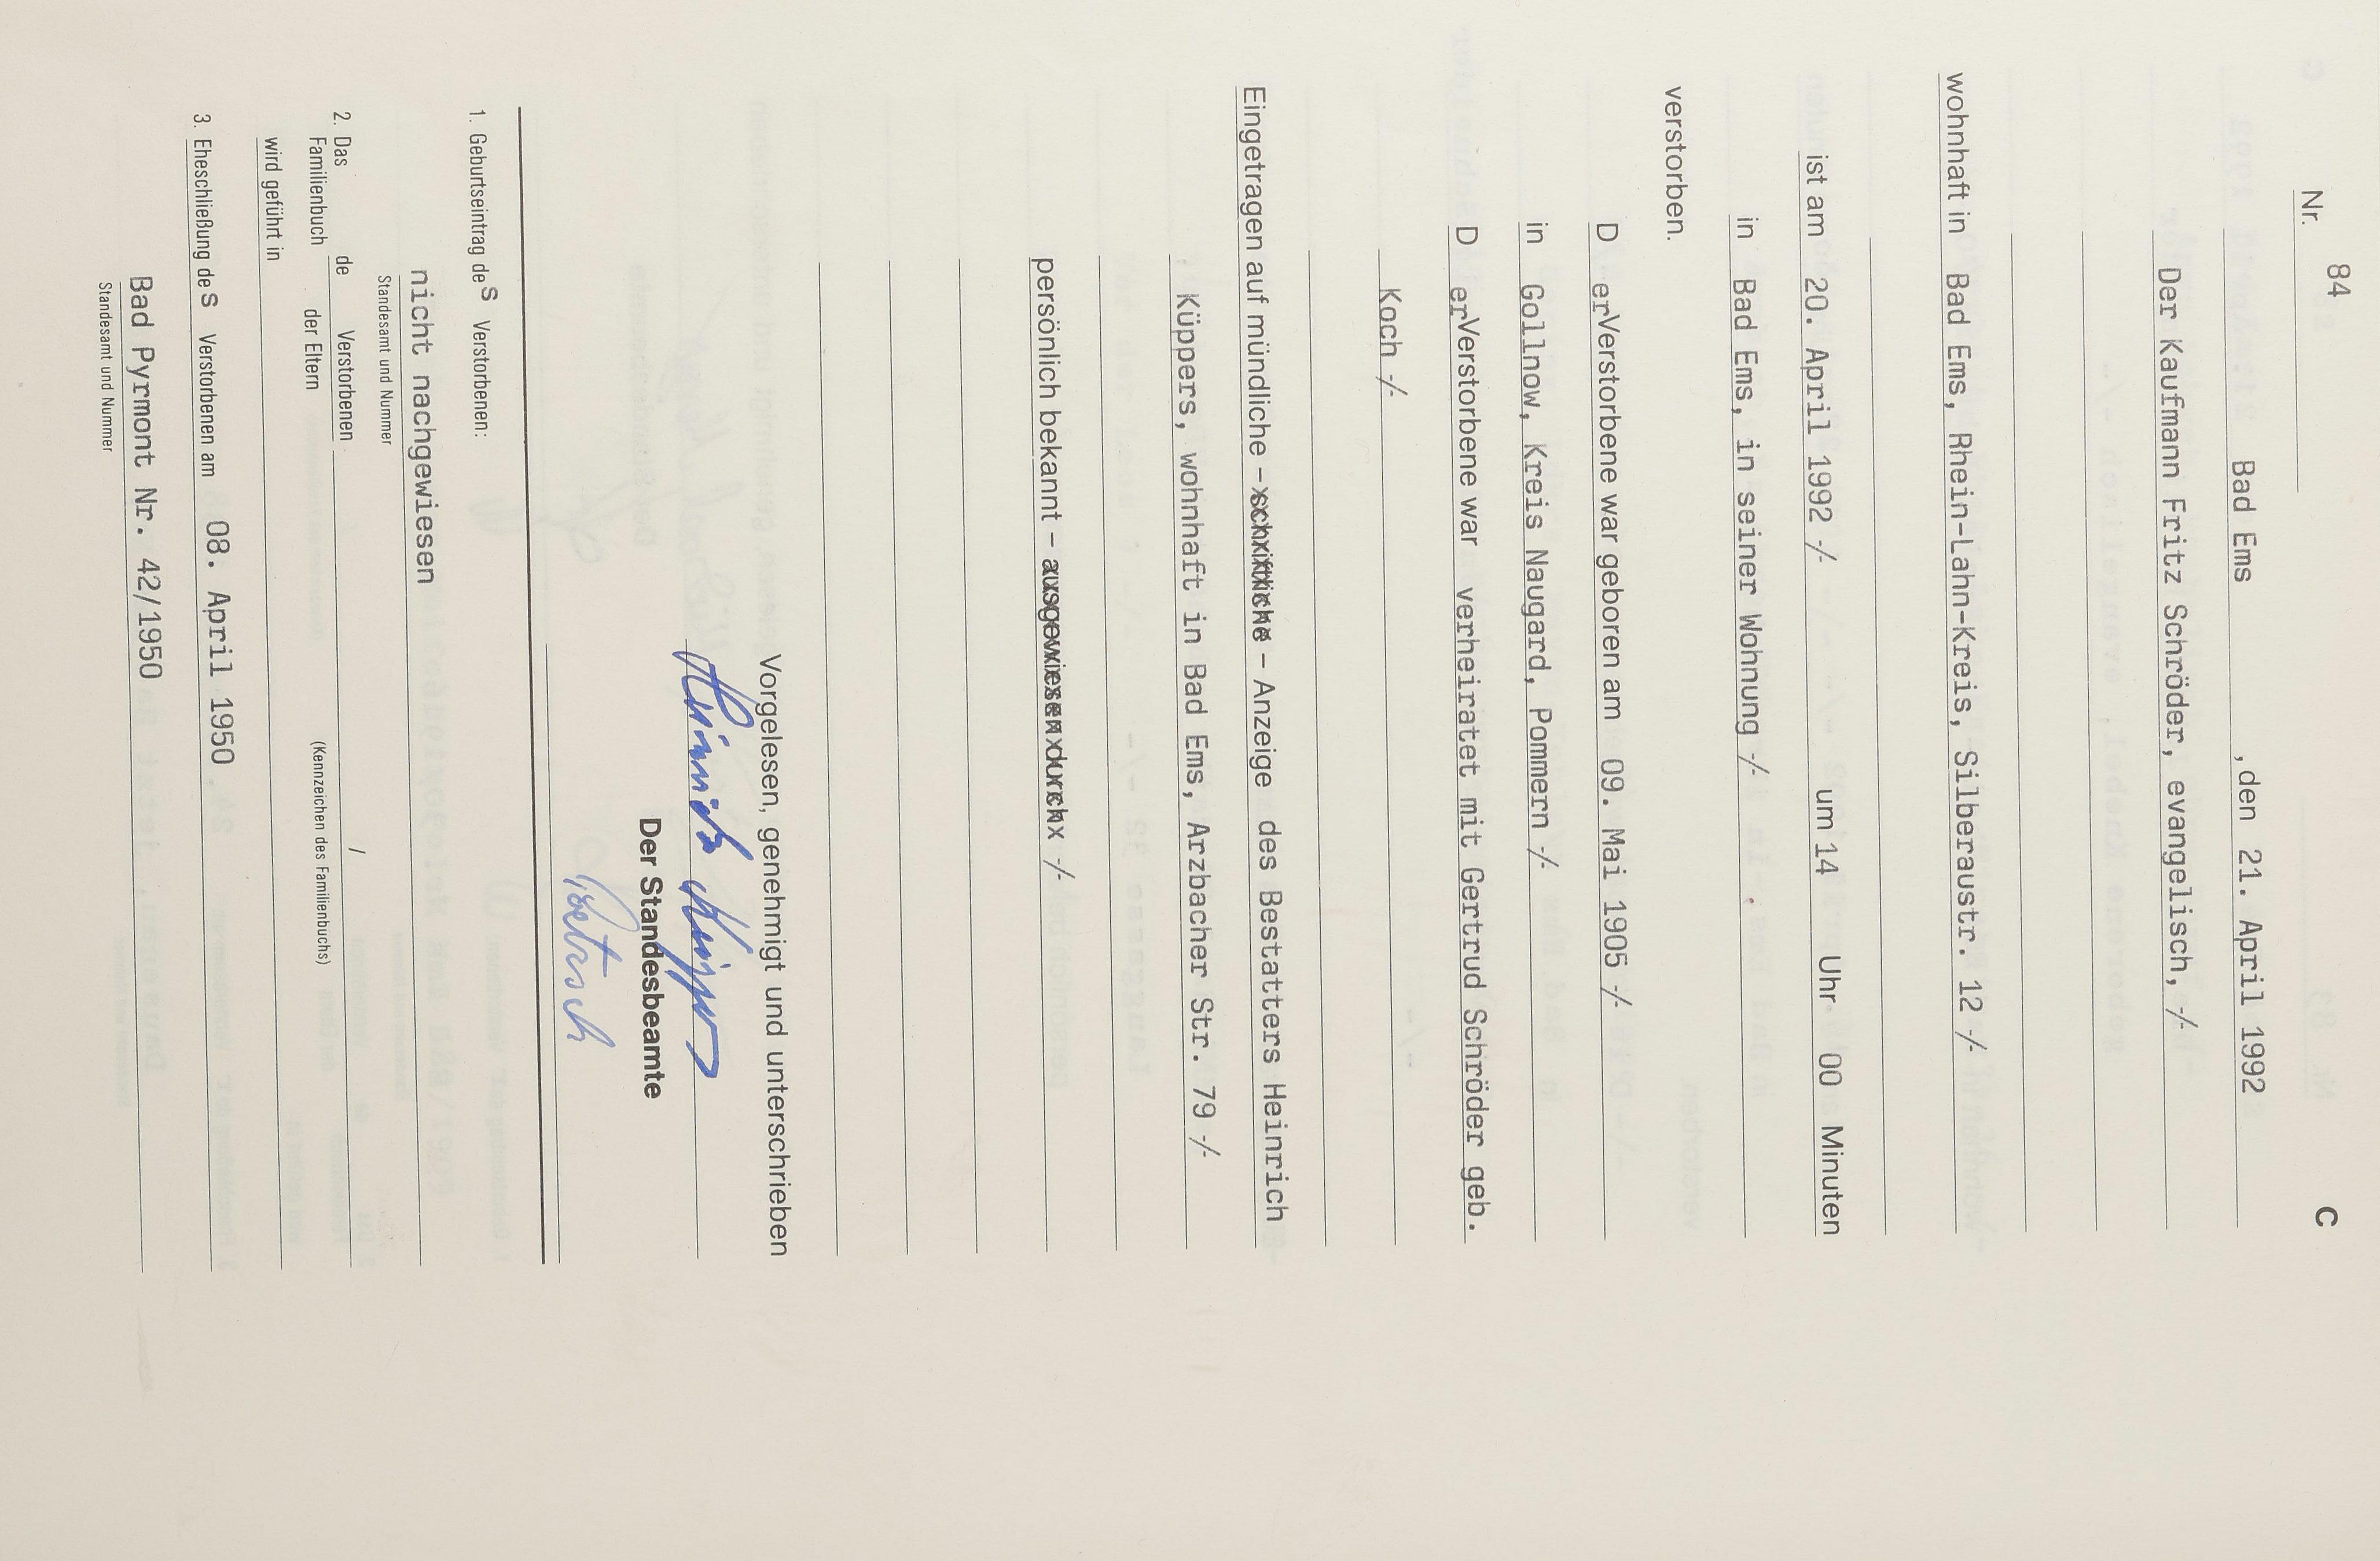 Nr. 84 C
Bad Ems , den 21. April 1992
Der Kaufmann Fritz Schröder, evangelisch, -/-
wohnhaft in Bad Ems, Rhein-Lahn-Kreis, Silberaustr. 12 -/-
ist am 20. April 1992 -/- um 14 Uhr 00 Minuten
in Bad Ems, in seiner Wohnung -/-
verstorben.
D er Verstorbene war geboren am 09. Mai 1905 -/-
in Gollnow, Kreis Naugard, Pommern -/-
D er Verstorbene war verheiratet mit Gertrud Schröder geb.
Koch -/-
Eingetragen auf mündliche – schriftliche – Anzeige des Bestatters Heinrich
Küppers, wohnhaft in Bad Ems, Arzbacher Str. 79 -/-
persönlich bekannt – ausgewiesen durch -/-
Vorgelesen, genehmigt und unterschrieben
Heinrich Küppers
Der Standesbeamte
1. Geburtseintrag des Verstorbenen:
nicht nachgewiesen
Standesamt und Nummer
2. Das Familienbuch de Verstorbenen /
der Eltern (Kennzeichen des Familienbuchs)
wird geführt in
3. Eheschließung des Verstorbenen am 08. April 1950
Bad Pyrmont Nr. 42/1950
Standesamt und Nummer